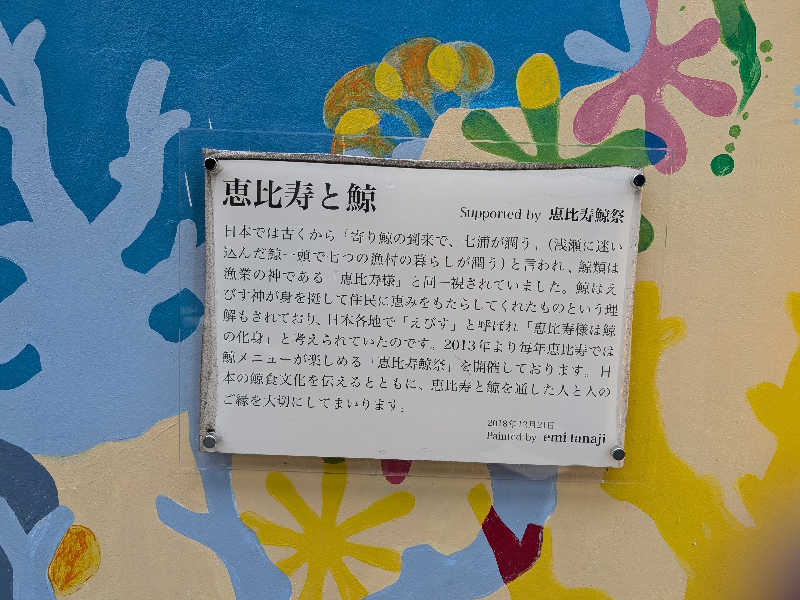 恵比寿と鯨
Supported by 恵比寿鯨祭
日本では古くから「寄り鯨の到来で、七浦が潤う」(浅瀬に迷い
込んだ鯨一頭で七つの漁村の暮らしが潤う)と言われ、鯨類は
漁業の神である「恵比寿様」と同一視されていました。鯨はえ
びす神が身を挺して住民に恵みをもたらしてくれたものという理
解もされており、日本各地で「えびす」と呼ばれ「恵比寿様は鯨
の化身」と考えられていたのです。2013年より毎年恵比寿では
鯨メニューが楽しめる「恵比寿鯨祭」を開催しております。日
本の鯨食文化を伝えるとともに、恵比寿と鯨を通した人と人の
ご縁を大切にしてまいります。
2018年12月21日
Painted by emi tanaji